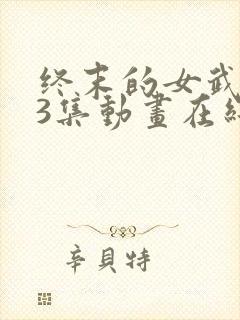 终末的女武
3集動畫在
辛貝特